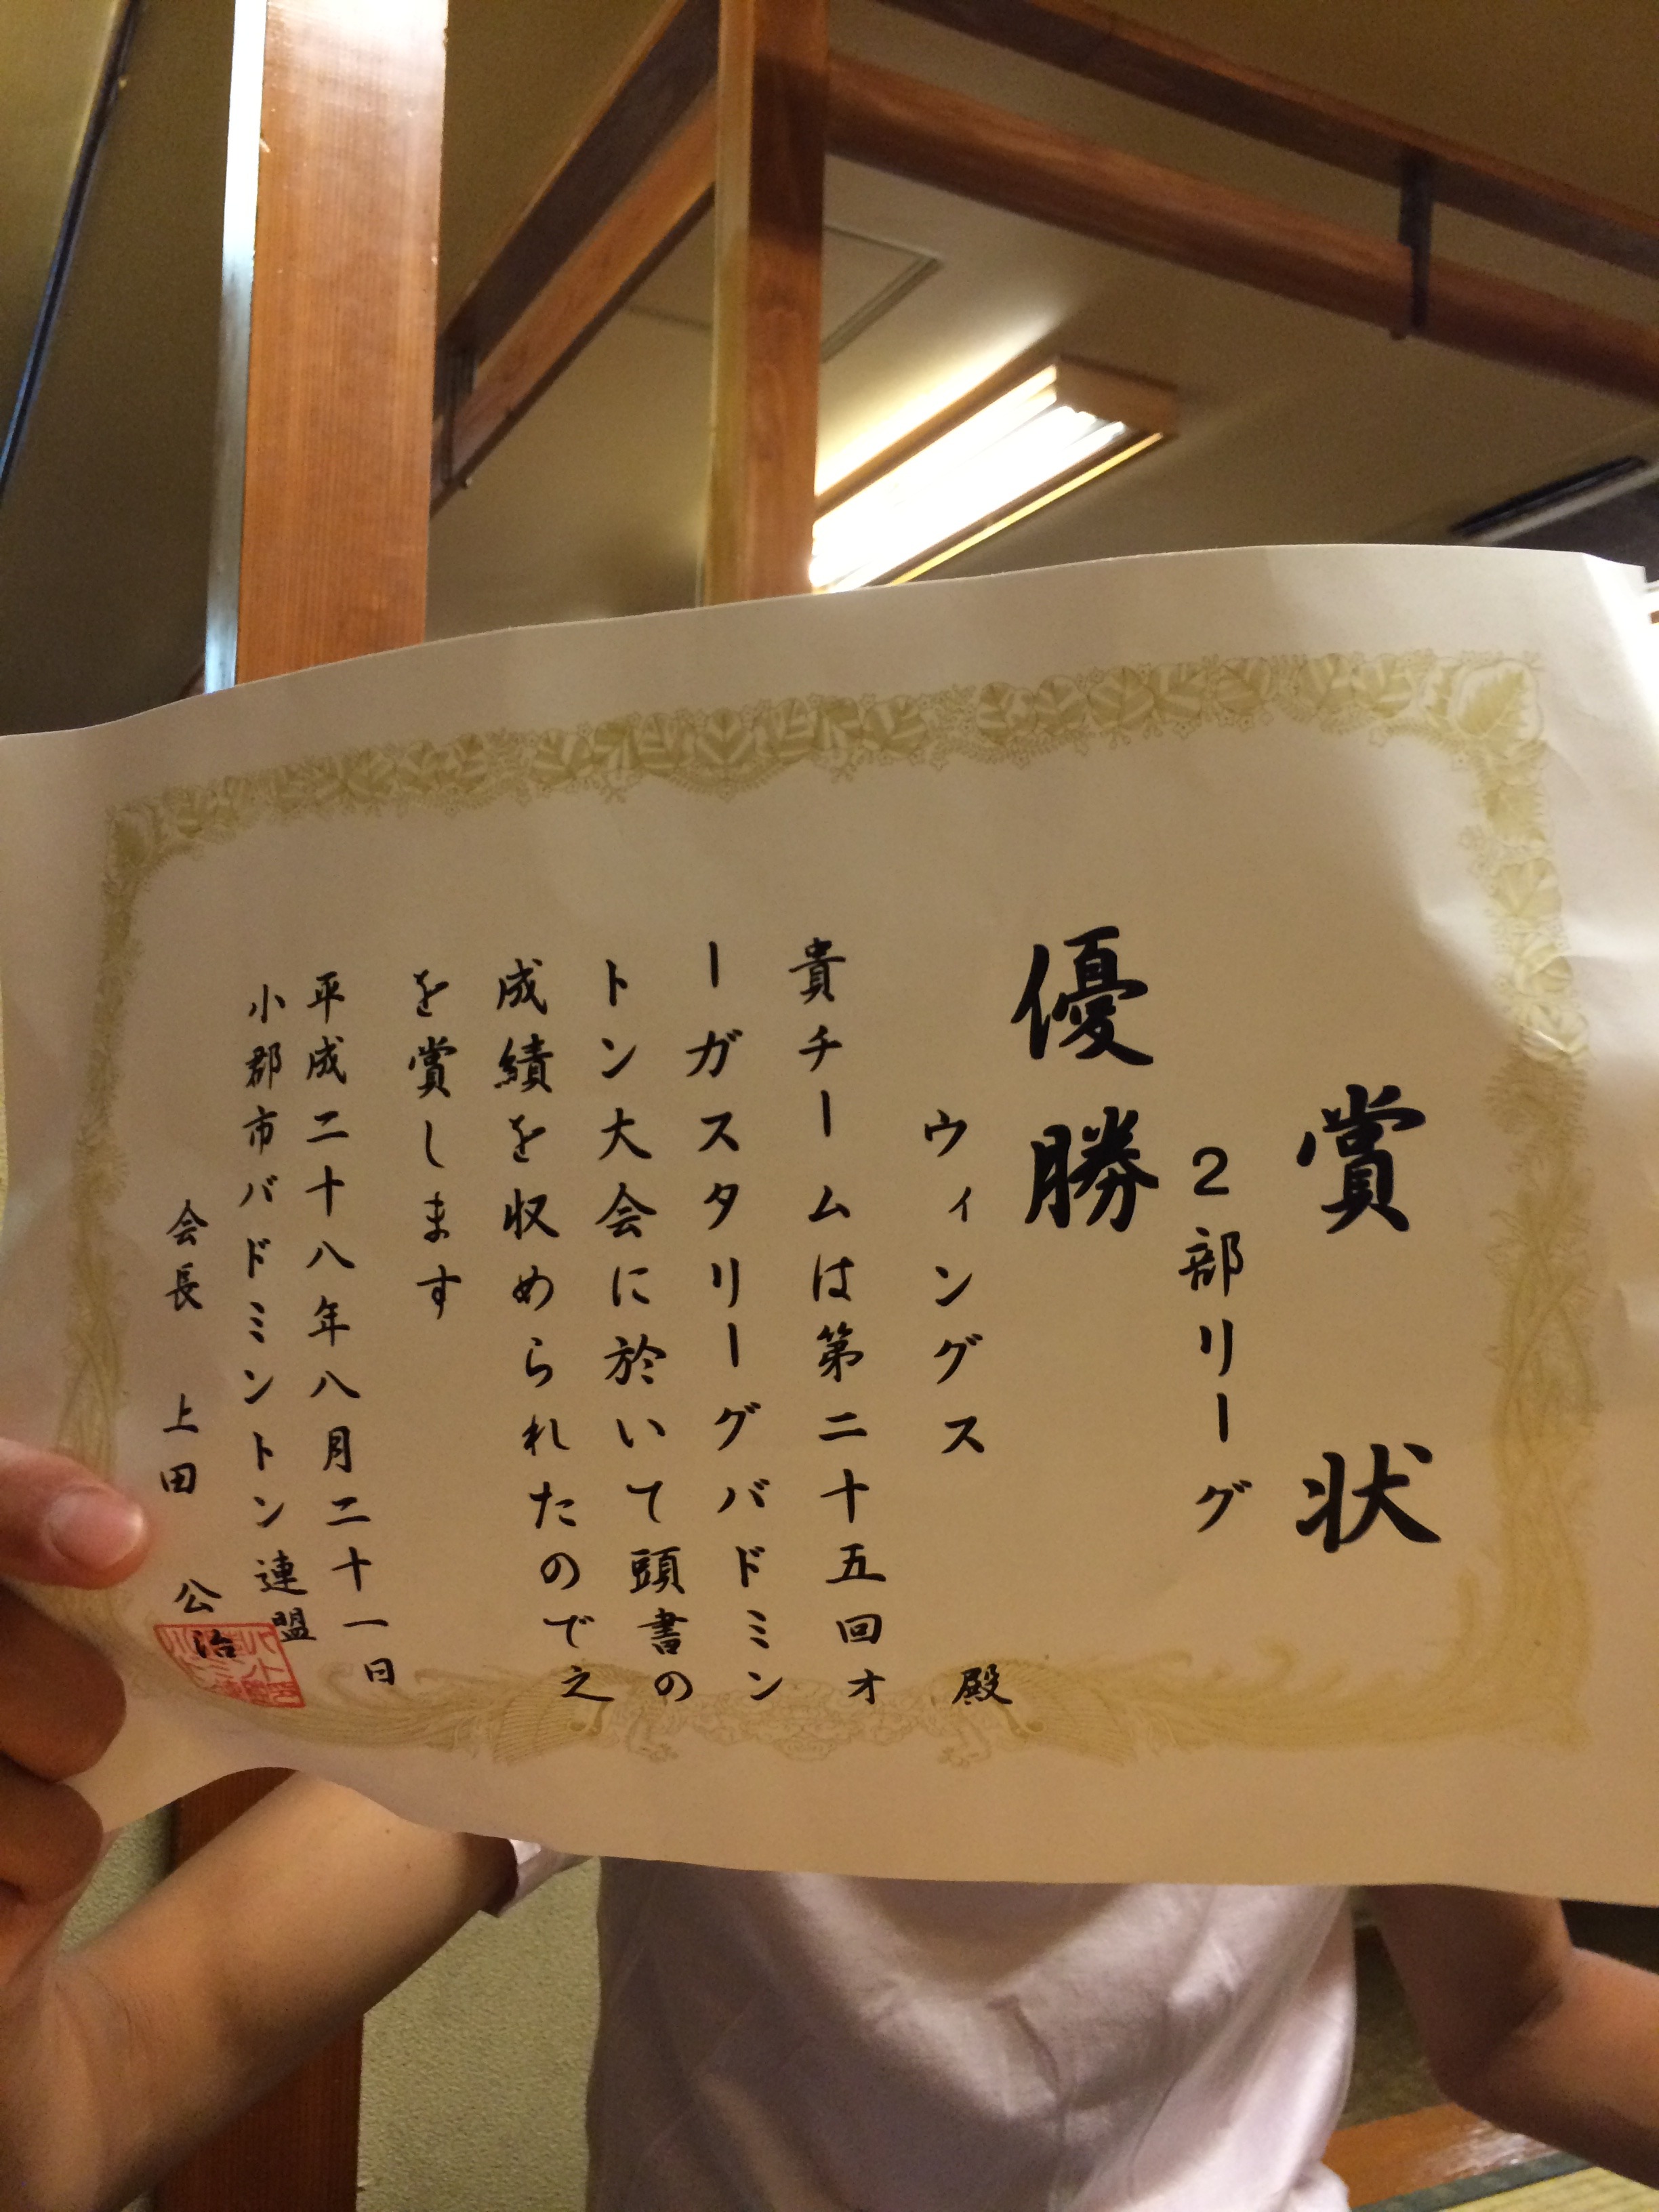 賞状
2部リーグ
優勝
ウィングス 殿
貴チームは第二十五回オ
ーガスタリーグバドミン
トン大会に於いて頭書の
成績を収められたので之
を賞します
平成二十八年八月二十一日
小郡市バドミントン連盟
会長 上田 公治